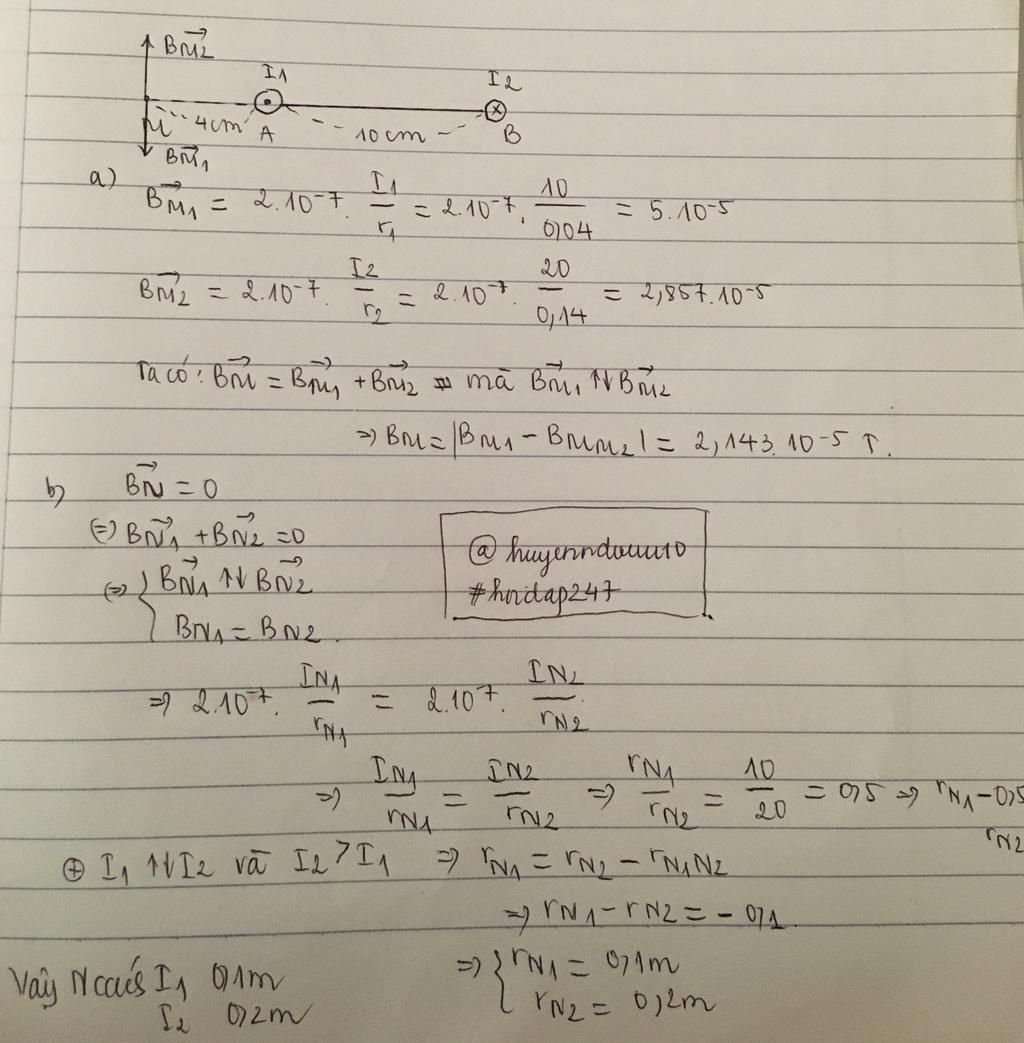 BM₂
I₁ I₂
M 4cm A 10cm B
BM₁
a) BM₁ = 2.10⁻⁷. I₁/r₁ = 2.10⁻⁷. 10/0,04 = 5.10⁻⁵
BM₂ = 2.10⁻⁷. I₂/r₂ = 2.10⁻⁷. 20/0,14 = 2,857.10⁻⁵
Ta có: BM = BM₁ + BM₂ mà BM₁ ↑↓ BM₂
⇒ BM = |BM₁ - BMM₂| = 2,143.10⁻⁵ T.
b) BN = 0
⇔ BN₁ + BN₂ = 0
⇔ { BN₁ ↑↓ BN₂
BN₁ = BN₂.
@huyenndouuu10
#hoidap247
⇒ 2.10⁻⁷. IN₁/rN₁ = 2.10⁻⁷. IN₂/rN₂
⇒ IN₁/rN₁ = IN₂/rN₂ ⇒ rN₁/rN₂ = 10/20 = 0,5 ⇒ rN₁ - 0,5
rN₂
⊕ I₁ ↑↓ I₂ và I₂ > I₁ ⇒ rN₁ = rN₂ - rN₁N₂
⇒ rN₁ - rN₂ = - 0,1
⇒ { rN₁ = 0,1m
rN₂ = 0,2m
Vậy N cách I₁ 0,1m
I₂ 0,2m